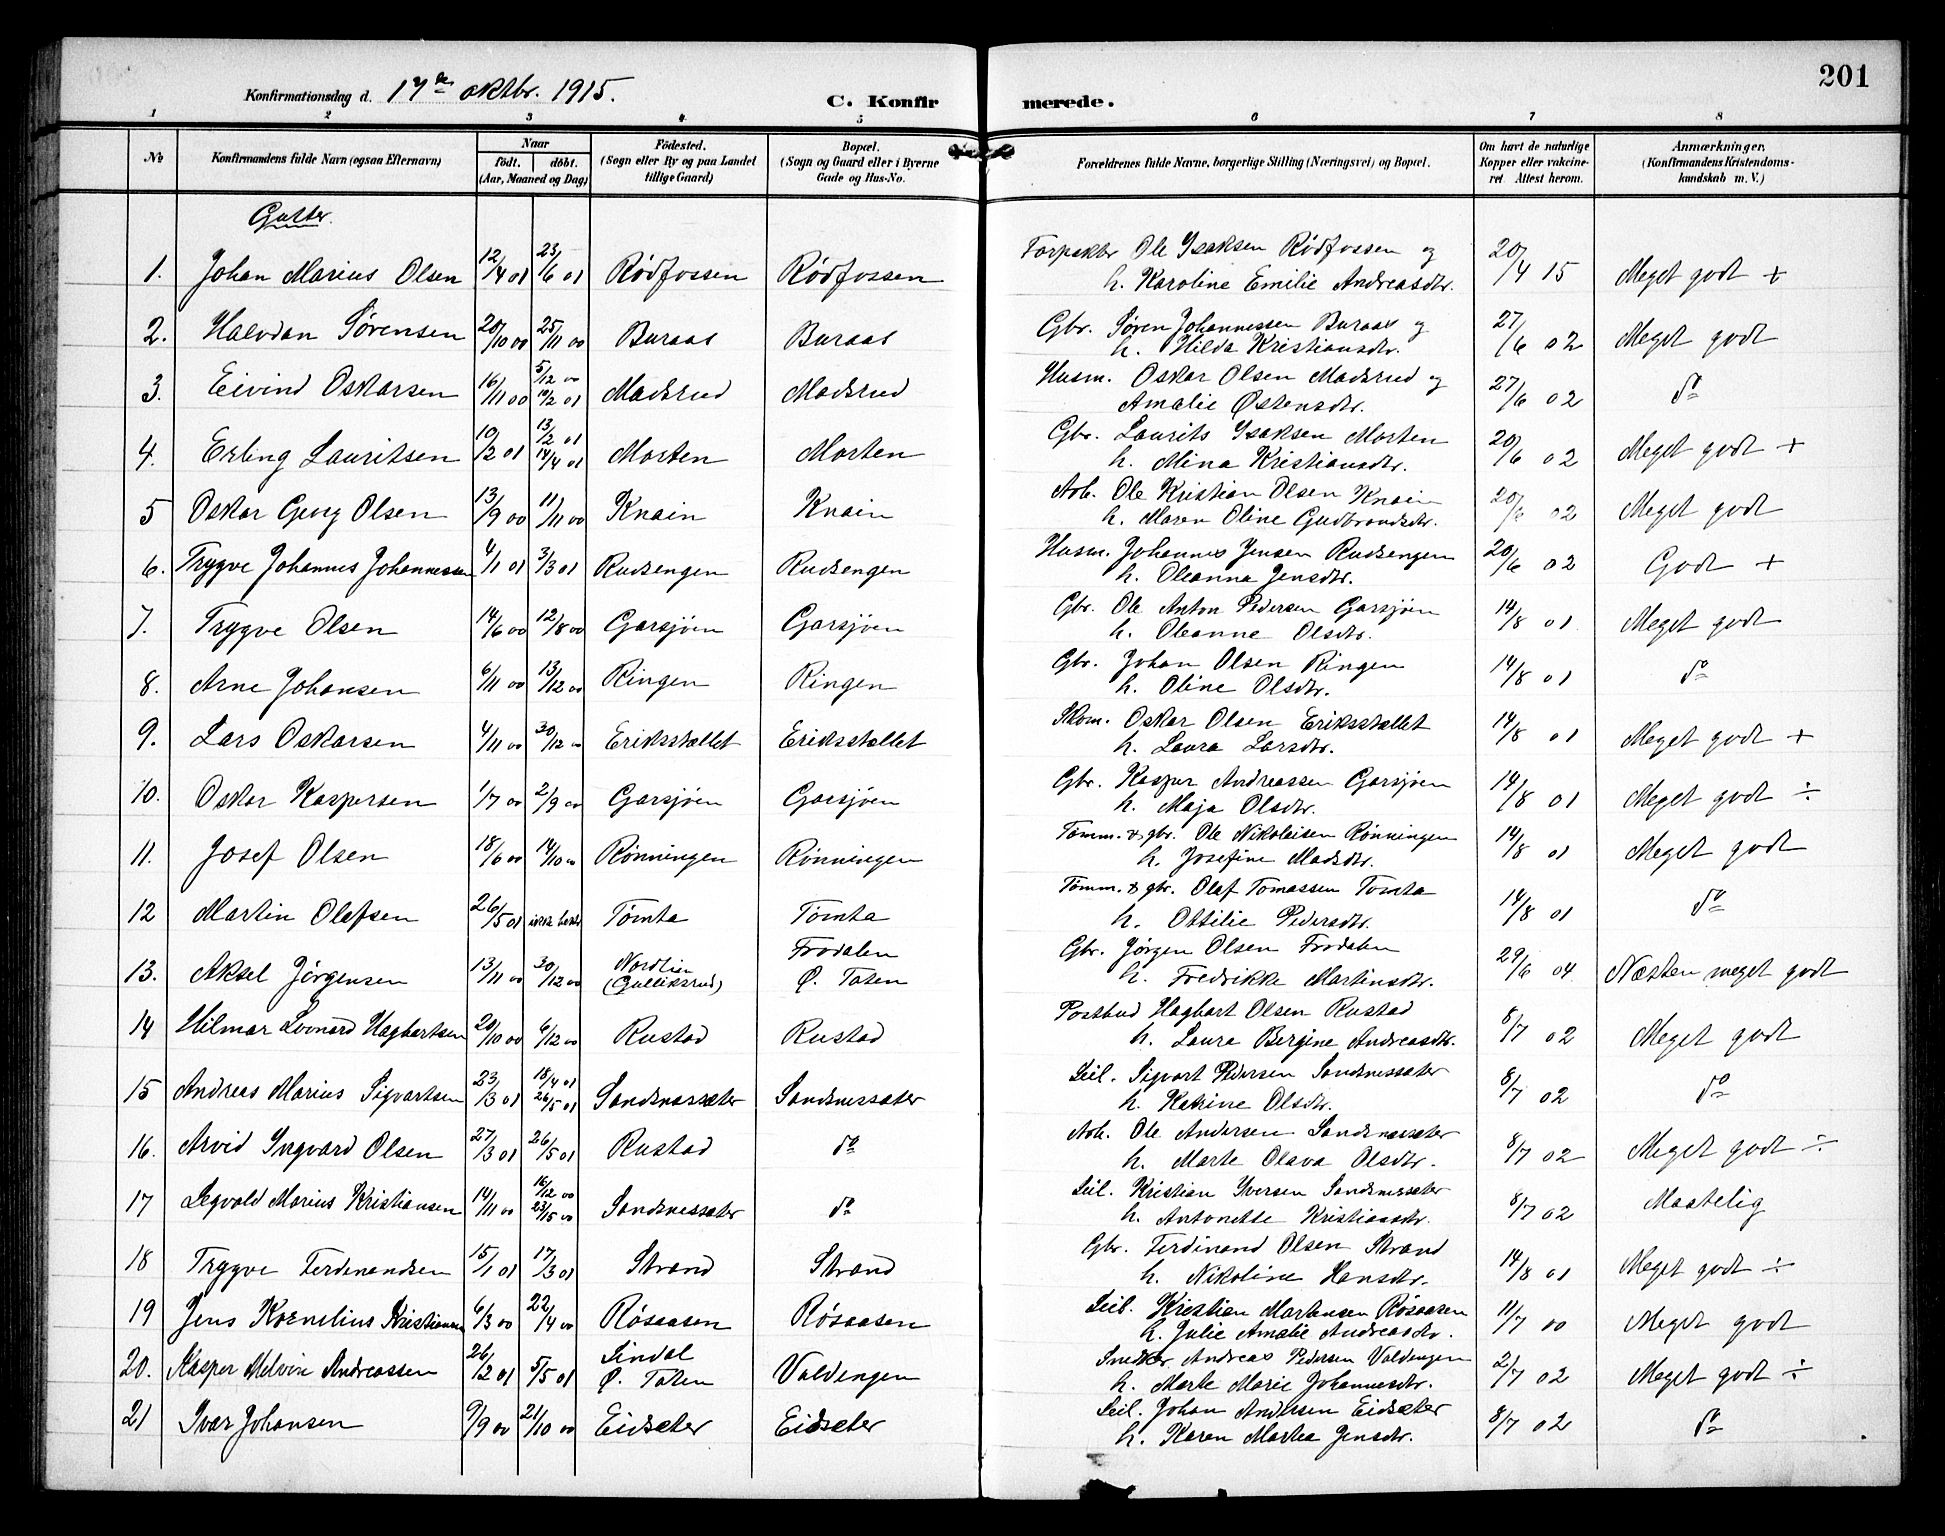 201
Konfirmationsdag d. 17de oktbr. 1915.
C. Konfirmerede.
1 2 3 4 5 6 7 8
No
Konfirmandens fulde Navn (ogsaa Efternavn)
Naar
födt. döbt.
(Aar, Maaned og Dag)
Födested.
(Sogn eller By og paa Landet tillige Gaard)
Bopæl.
(Sogn og Gaard eller i Byerne Gade og Hus-No.
Forældrenes fulde Navne, borgerlige Stilling (Næringsvei) og Bopæl.
Om havt de naturlige Kopper eller vakcineret Attest herom.
Anmærkninger.
(Konfirmandens Kristendomskundskab m. V.)
Gutter.
1. Johan Marius Olsen 12/4 01 23/6 01 Rödfossen Rödfossen Forpakter Ole Isaksen Rödfossen og
h. Karoline Emilie Andreasdtr. 20/4 15 Meget godt +
2. Halvdan Sörensen 20/10 00 25/11 00 Buraas Buraas Gbr. Sören Johannessen Buraas og
h. Hilda Kristiansdtr. 27/6 02 Meget godt
3. Eivind Oskarsen 16/11 00 5/12 00 10/2 01 Madsrud Madsrud Husm. Oskar Olsen Madsrud og
Amalie Östensdtr. 27/6 02 do
4. Erling Lauritsen 10/2 01 13/2 01 14/4 01 Morten Morten Gbr. Laurits Isaksen Morten
h. Mina Kristiansdtr. 20/6 02 Meget godt +
5 Oskar Georg Olsen 13/9 00 11/11 00 Knain Knain Arb. Ole Kristian Olsen Knain
h. Maren Oline Gudbrandsdtr. 20/6 02 Meget godt
6. Trygve Johannes Johannessen 4/1 01 3/3 01 Rudsengen Rudsengen Husm. Johannes Jensen Rudsengen
h. Oleanna Jensdtr. 20/6 02 Godt +
7. Trygve Olsen 14/6 00 12/8 00 Garsjöen Garsjöen Gbr. Ole Anton Pedersen Garsjöen
h. Oleanne Olsdtr. 14/8 01 Meget godt
8. Arne Johansen 6/11 00 13/12 00 Ringen Ringen Gbr. Johan Olsen Ringen
h. Oline Olsdtr. 14/8 01 do
9. Lars Oskarsen 4/11 00 30/12 00 Eriksstallet Eriksstallet Skom. Oskar Olsen Eriksstallet
h. Laura Larsdtr. 14/8 01 Meget godt +
10. Oskar Kaspersen 1/7 00 2/9 00 Garsjöen Garsjöen Gbr. Kasper Andreassen Garsjöen
h. Maja Olsdtr. 14/8 01 Meget godt ÷
11. Josef Olsen 18/6 00 14/10 00 Rönningen Rönningen Tömm. & gbr. Ole Nikolaisen Rönningen
h. Josefine Madsdtr. 14/8 01 Meget godt
12 Martin Olafsen 26/5 01 Tömta Tömta Tömm. & gbr. Olaf Tomassen Tömta
h. Ottilie Pedersdtr. 14/8 01 do
13. Aksel Jörgensen 13/11 00 30/12 00 Nordlien (Gulliksrud) Frodalen Ö. Toten Gbr. Jörgen Olsen Frodalen
h. Fredrikke Martinsdtr. 29/6 04 Næsten meget godt
14 Hilmar Leonard Hagbartsen 20/10 00 6/12 00 Rustad Rustad Postbud Hagbart Olsen Rustad
h. Laura Bergine Andreasdtr. 8/7 02 Meget godt
15 Andreas Marius Sigvartsen 23/3 01 18/4 01 26/5 01 Sandnessæter Sandnessæter Leil. Sigvart Pedersen Sandnessæter
h. Katrine Olsdtr. 8/7 02 do
16. Arvid Ingvard Olsen 27/3 01 26/5 01 Rustad do Arb. Ole Andersen Sandnessæter
h. Marte Olava Olsdtr. 8/7 02 Meget godt ÷
17 Segvald Marius Kristiansen 14/11 00 16/12 00 23/15 00 Sandnessæter do Leil. Kristian Iversen Sandnessæter
h. Antonette Kristiansdtr. 8/7 02 Maatelig
18 Trygve Ferdinandsen 15/1 01 17/3 01 Strand Strand Gbr. Ferdinand Olsen Strand
h. Nikoline Hansdtr. 14/8 01 Meget godt ÷
19 Jens Kornelius Kristiansen 6/3 00 22/4 00 Rösaasen Rösaasen Leil. Kristian Martensen Rösaasen
h. Julie Amalie Andreasdtr. 11/7 00 Meget godt
20. Kasper Melvin Andreassen 26/2 01 5/5 01 Sindal Ö. Toten Valdengen Snedker. Andreas Pedersen Valdengen
h. Marte Marie Johannesdtr. 2/7 02 Meget godt ÷
21 Ivar Johansen 9/9 00 21/10 00 Eidsæter Eidsæter Leil. Johan Andersen Eidsæter
h. Karen Martea Jensdtr. 8/7 02 do